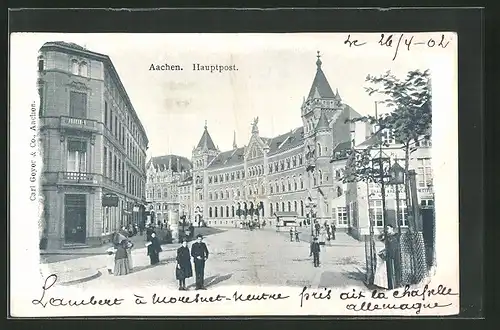 Aachen. Hauptpost.
le 26/4-02
Carl Geyer & Co., Aachen.
Lambert à Moresnet-Neutre près Aix la Chapelle
allemagne